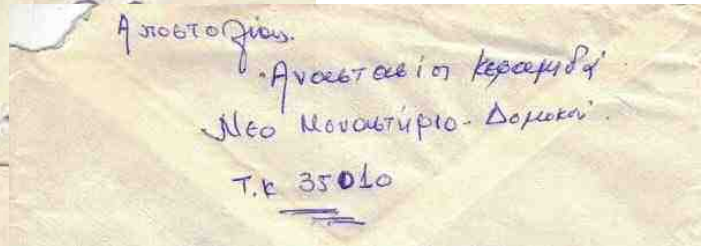 Αποστολέας.
Αναστασία Κεραμιδά
Νέο Μοναστήριο - Δομοκού.
Τ.Κ 35010